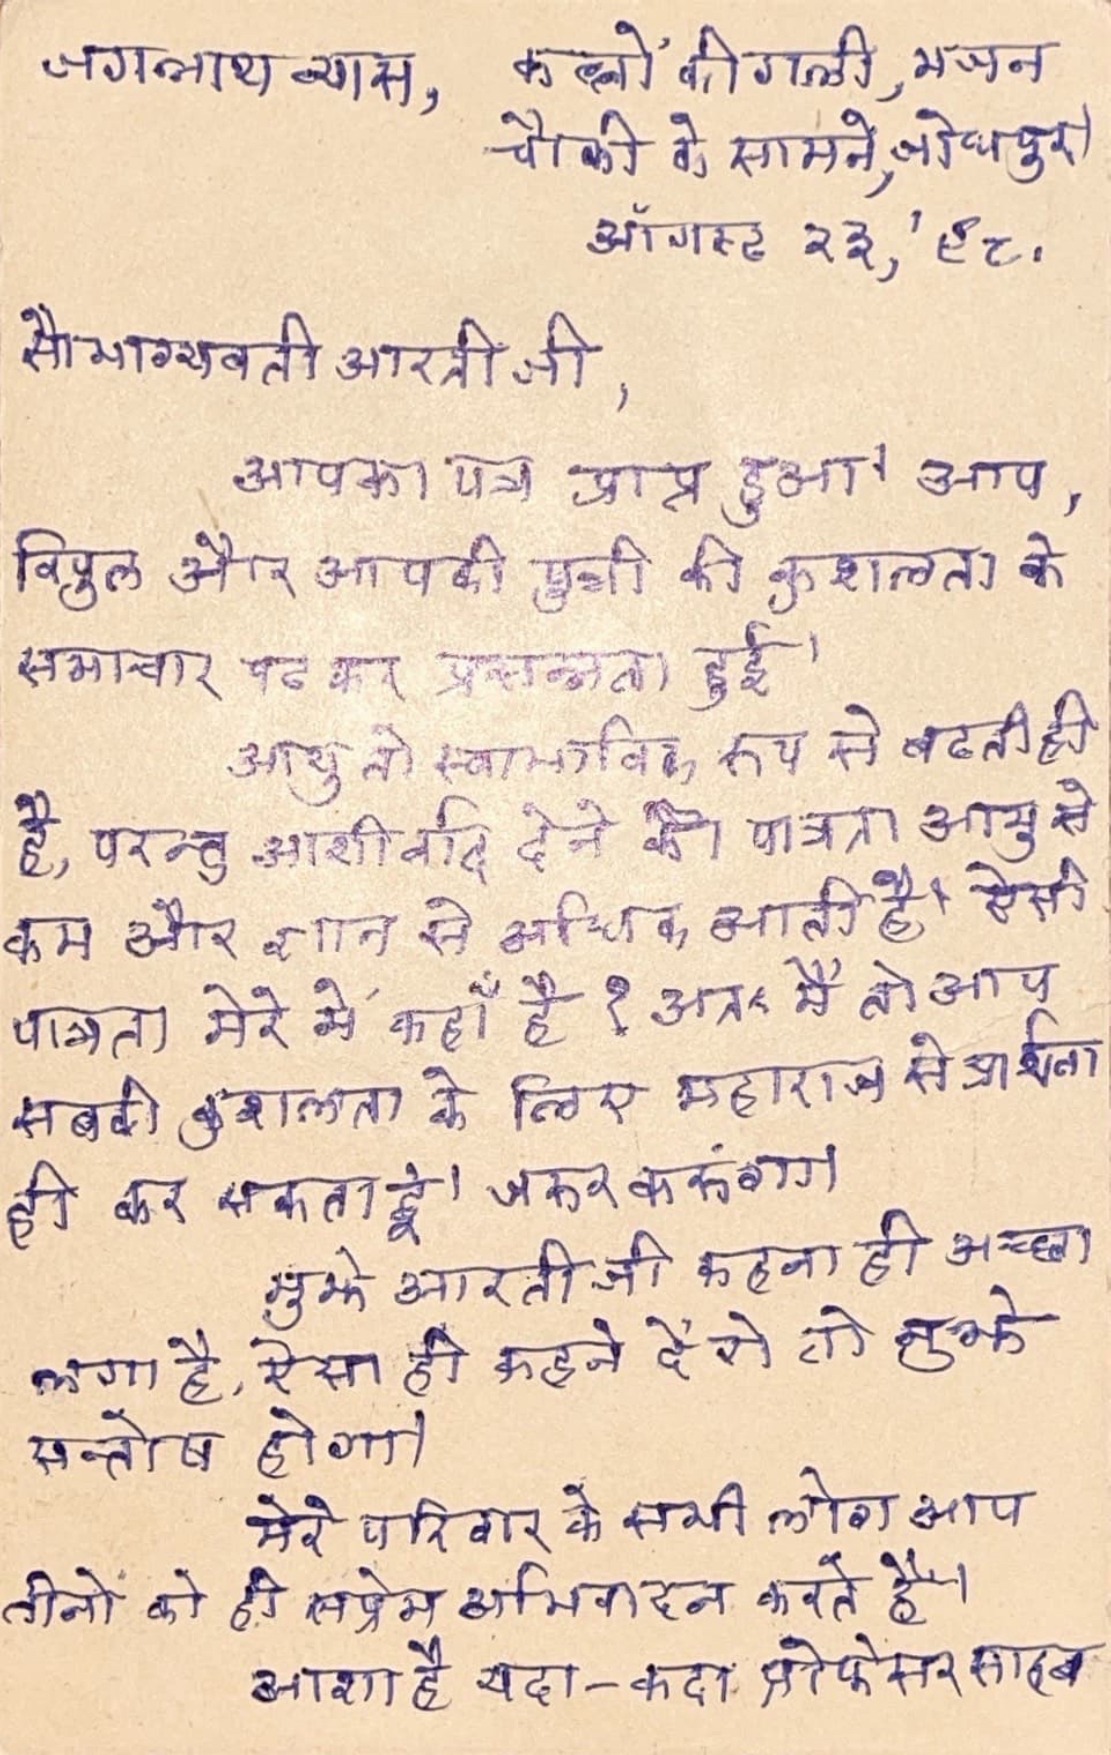 जगन्नाथ व्यास, कल्लों की गली, भजन
चौकी के सामने, जोधपुर।
ऑगस्ट २३, '९८.
सौभाग्यवती आरती जी,
आपका पत्र प्राप्त हुआ। आप,
विपुल और आपकी पुत्री की कुशलता के
समाचार पढ कर प्रसन्नता हुई।
आयु तो स्वाभाविक रूप से बढती ही
है, परन्तु आशीर्वाद देने की पात्रता आयु से
कम और ज्ञान से अधिक आती है। ऐसी
पात्रता मेरे में कहाँ है? अतः मैं तो आप
सबकी कुशलता के लिए महाराज से प्रार्थना
ही कर सकता हूं। जरूर करूंगा।
मुझे आरती जी कहना ही अच्छा
लगा है, ऐसा ही कहने देंगे तो मुझे
सन्तोष होगा।
मेरे परिवार के सभी लोग आप
तीनों को ही सप्रेम अभिवादन करते हैं।
आशा है यदा-कदा प्रोफेसर साहब